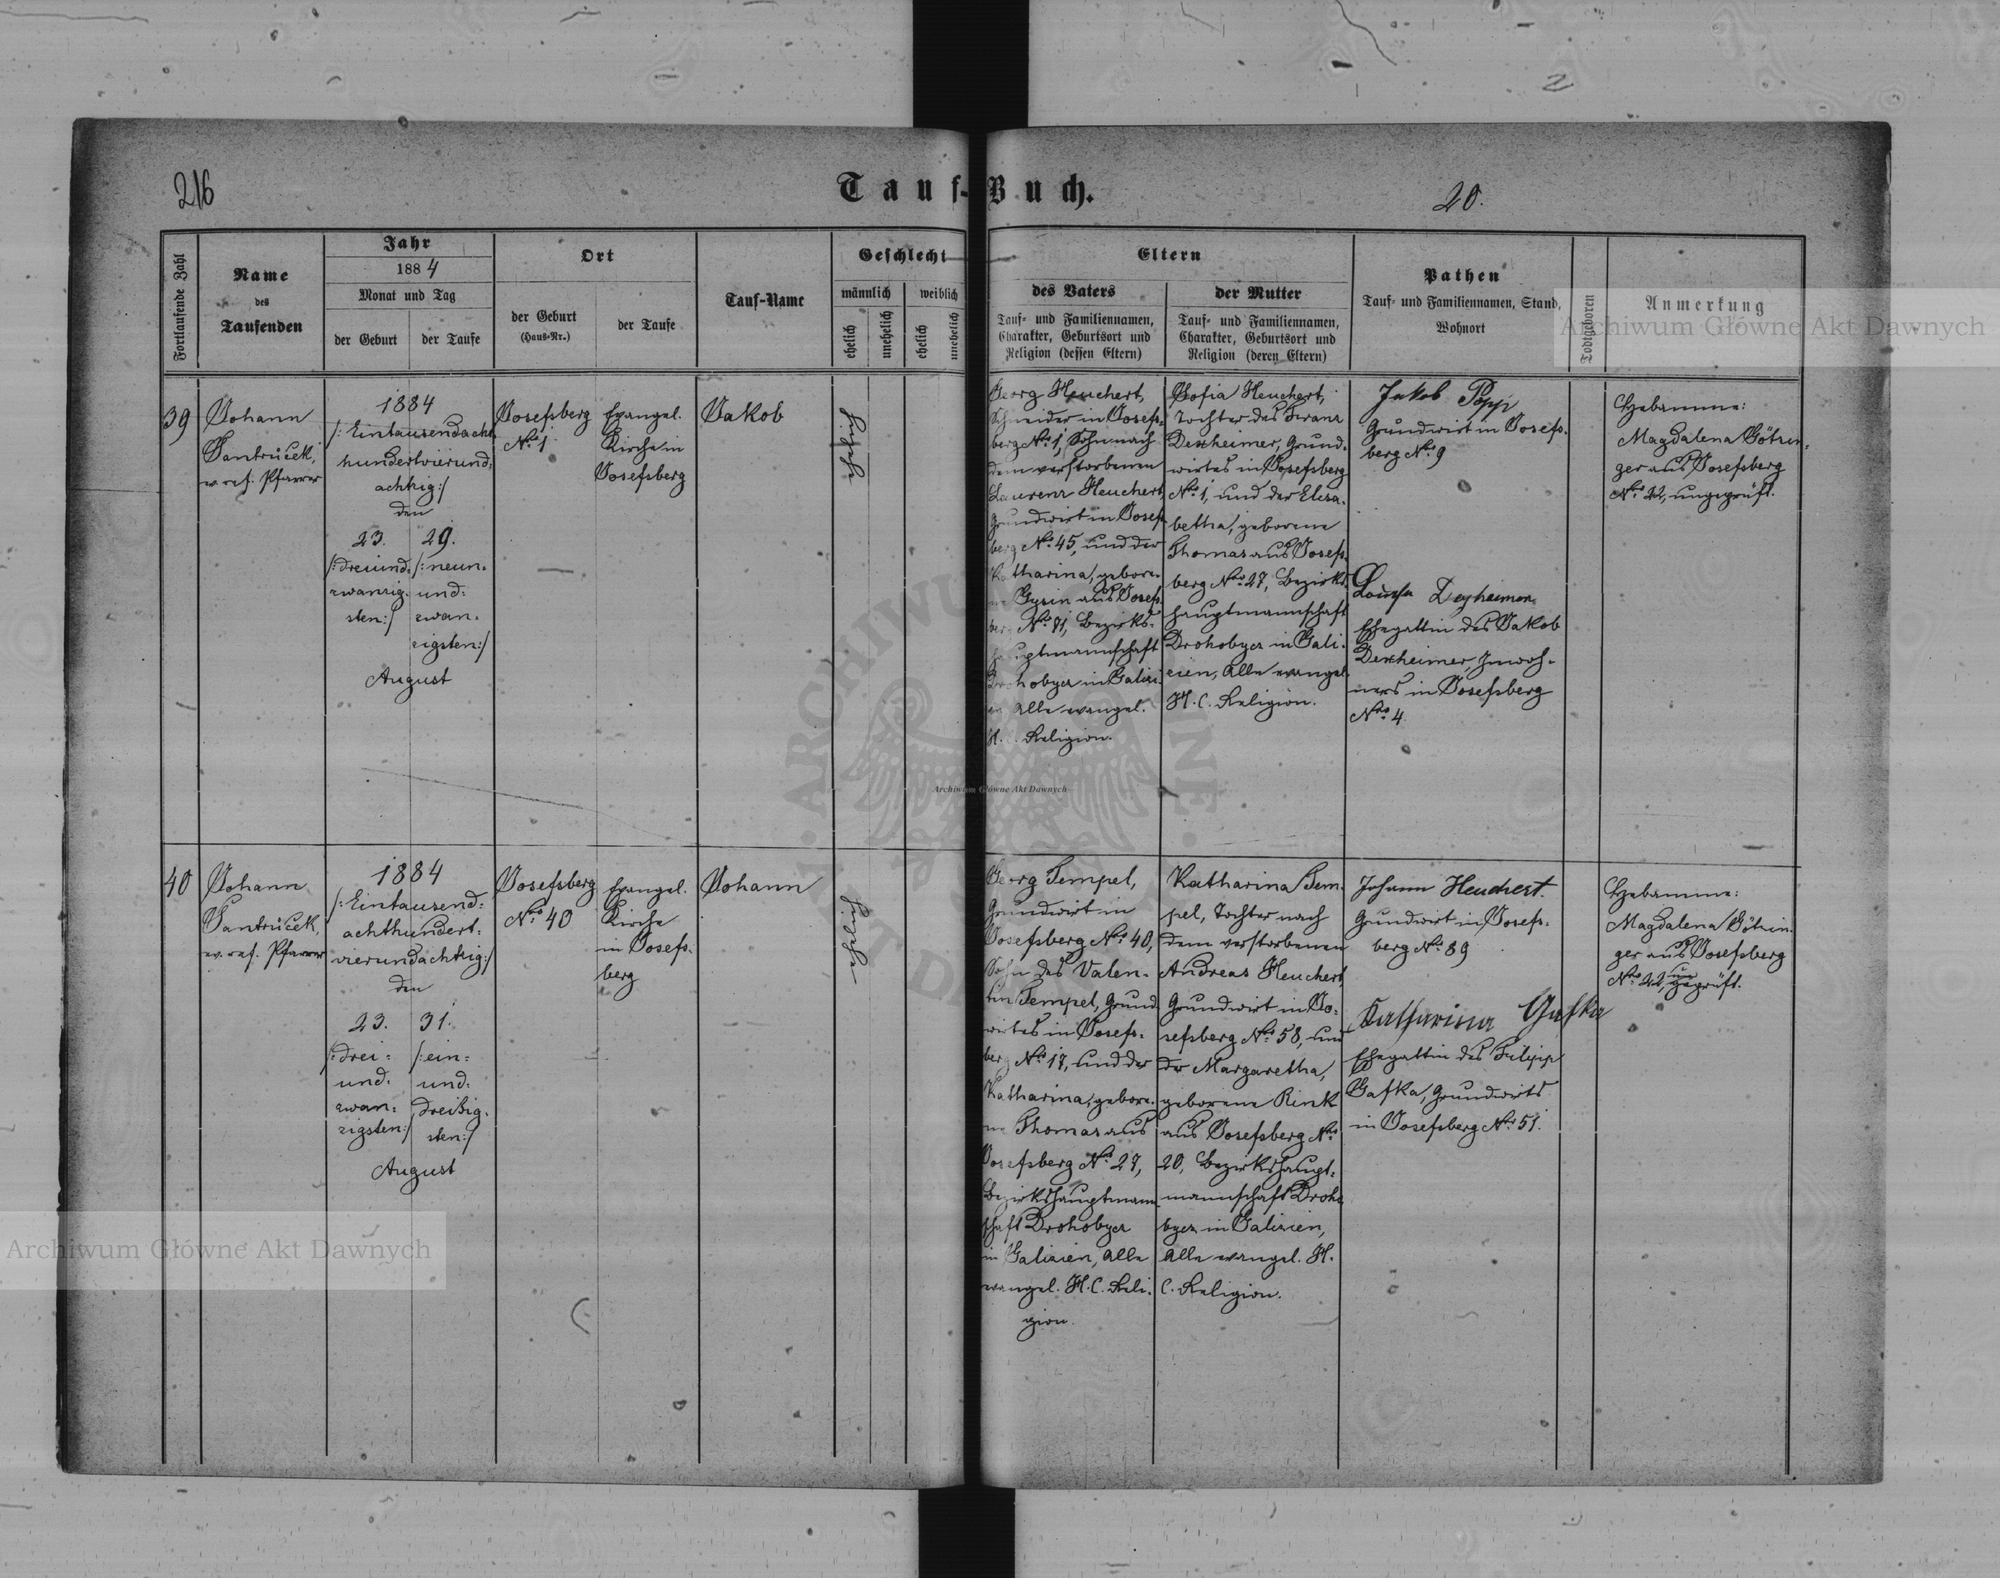 216
Tauf-Buch.
20.
Fortlaufende Zahl
Name
des
Taufenden
Jahr
1884
Monat und Tag
der Geburt
der Taufe
Ort
der Geburt
(Haus-Nr.)
der Taufe
Tauf-Name
Geschlecht
männlich
weiblich
ehelich
unehelich
ehelich
unehelich
Eltern
des Vaters
Tauf- und Familiennamen,
Charakter, Geburtsort und
Religion (dessen Eltern)
der Mutter
Tauf- und Familiennamen,
Charakter, Geburtsort und
Religion (deren Eltern)
Pathen
Tauf- und Familiennamen, Stand,
Wohnort
Todtgeboren
Anmerkung
39
Johann
Jantrůček,
ev. ref. Pfarrer
1884
/: Eintausendacht-
hundertvierund-
achtzig :/
den
23.
/: dreiund-
zwanzig-
sten :/
29.
/: neun-
und-
zwan-
zigsten :/
August
Josefsberg
No. 1
Evangel.
Kirche in
Josefsberg
Jakob
ehelich
Georg Heuchert,
Schneider in Josefs-
berg No. 1, Sohn nach
dem verstorbenen
Laurenz Heuchert,
Grundwirt in Josefs-
berg No. 45, und der
Katharina, gebore-
ne
aus Josefs-
berg No. 81, Bezirks-
hauptmannschaft
Drohobycz in Galizi-
en Alle evangel.
H. C. Religion.
Sofia Heuchert,
Tochter des Franz
Dexheimer, Grund-
wirtes in Josefsberg
No. 1, und der Elisa-
betha, geborene
Thomas aus Josefs-
berg No. 27, Bezirks-
hauptmannschaft
Drohobycz in Gali-
zien, Alle evangel.
H. C. Religion.
Jakob Popp
Grundwirt in Josefs-
berg No. 9
Louisa Dexheimer
Ehegattin des Jakob
Dexheimer, Inwoh-
ners in Josefsberg
No. 4
Hebamme:
Magdalena Bötnin-
ger aus Josefsberg
No. 22, ungeprüft.
40
Johann
Jantrůček,
ev. ref. Pfarrer
1884
/: Eintausend-
achthundert-
vierundachtzig :/
den
23.
/: drei-
und-
zwan-
zigsten :/
31.
/: ein-
und-
dreißig-
sten :/
August
Josefsberg
No. 40
Evangel.
Kirche
in Josefs-
berg
Johann
ehelich
Georg Tempel,
Grundwirt in
Josefsberg No. 40,
Sohn des Valen-
tin Tempel, Grund-
wirtes in Josefs-
berg No. 17, und der
Katharina, gebore-
ne Thomas aus
Josefsberg No. 27,
Bezirkshauptmann-
schaft Drohobycz
in Galizien, Alle
evangel. H. C. Reli-
gion.
Katharina Tem-
pel, Tochter nach
dem verstorbenen
Andreas Heuchert
Grundwirt in Jo-
sefsberg No. 58, und
der Margaretha,
geborene Rink
aus Josefsberg No.
20, Bezirkshaupt-
mannschaft Droho-
bycz in Galizien,
Alle evangel. H.
C. Religion.
Johann Heuchert.
Grundwirt in Josefs-
berg No. 89
Katharina Gafka
Ehegattin des Filipp
Gafka, Grundwirts
in Josefsberg No. 51.
Hebamme:
Magdalena Bötnin-
ger aus Josefsberg
No. 22, ungeprüft.
Archiwum Główne Akt Dawnych
Archiwum Główne Akt Dawnych
Archiwum Główne Akt Dawnych